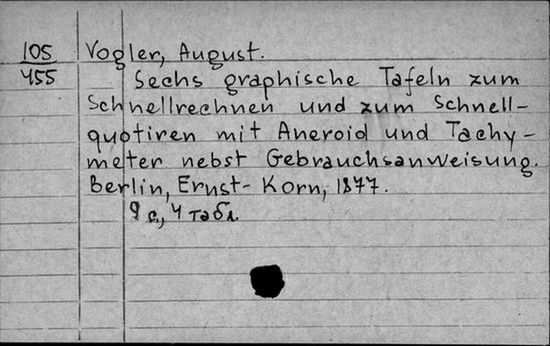 105 Vogler, August.
455 Sechs graphische Tafeln zum
Schnellrechnen und zum Schnell-
quotiren mit Aneroid und Tachy-
meter nebst Gebrauchsanweisung.
Berlin, Ernst-Korn, 1877.
9 с., 4 табл.